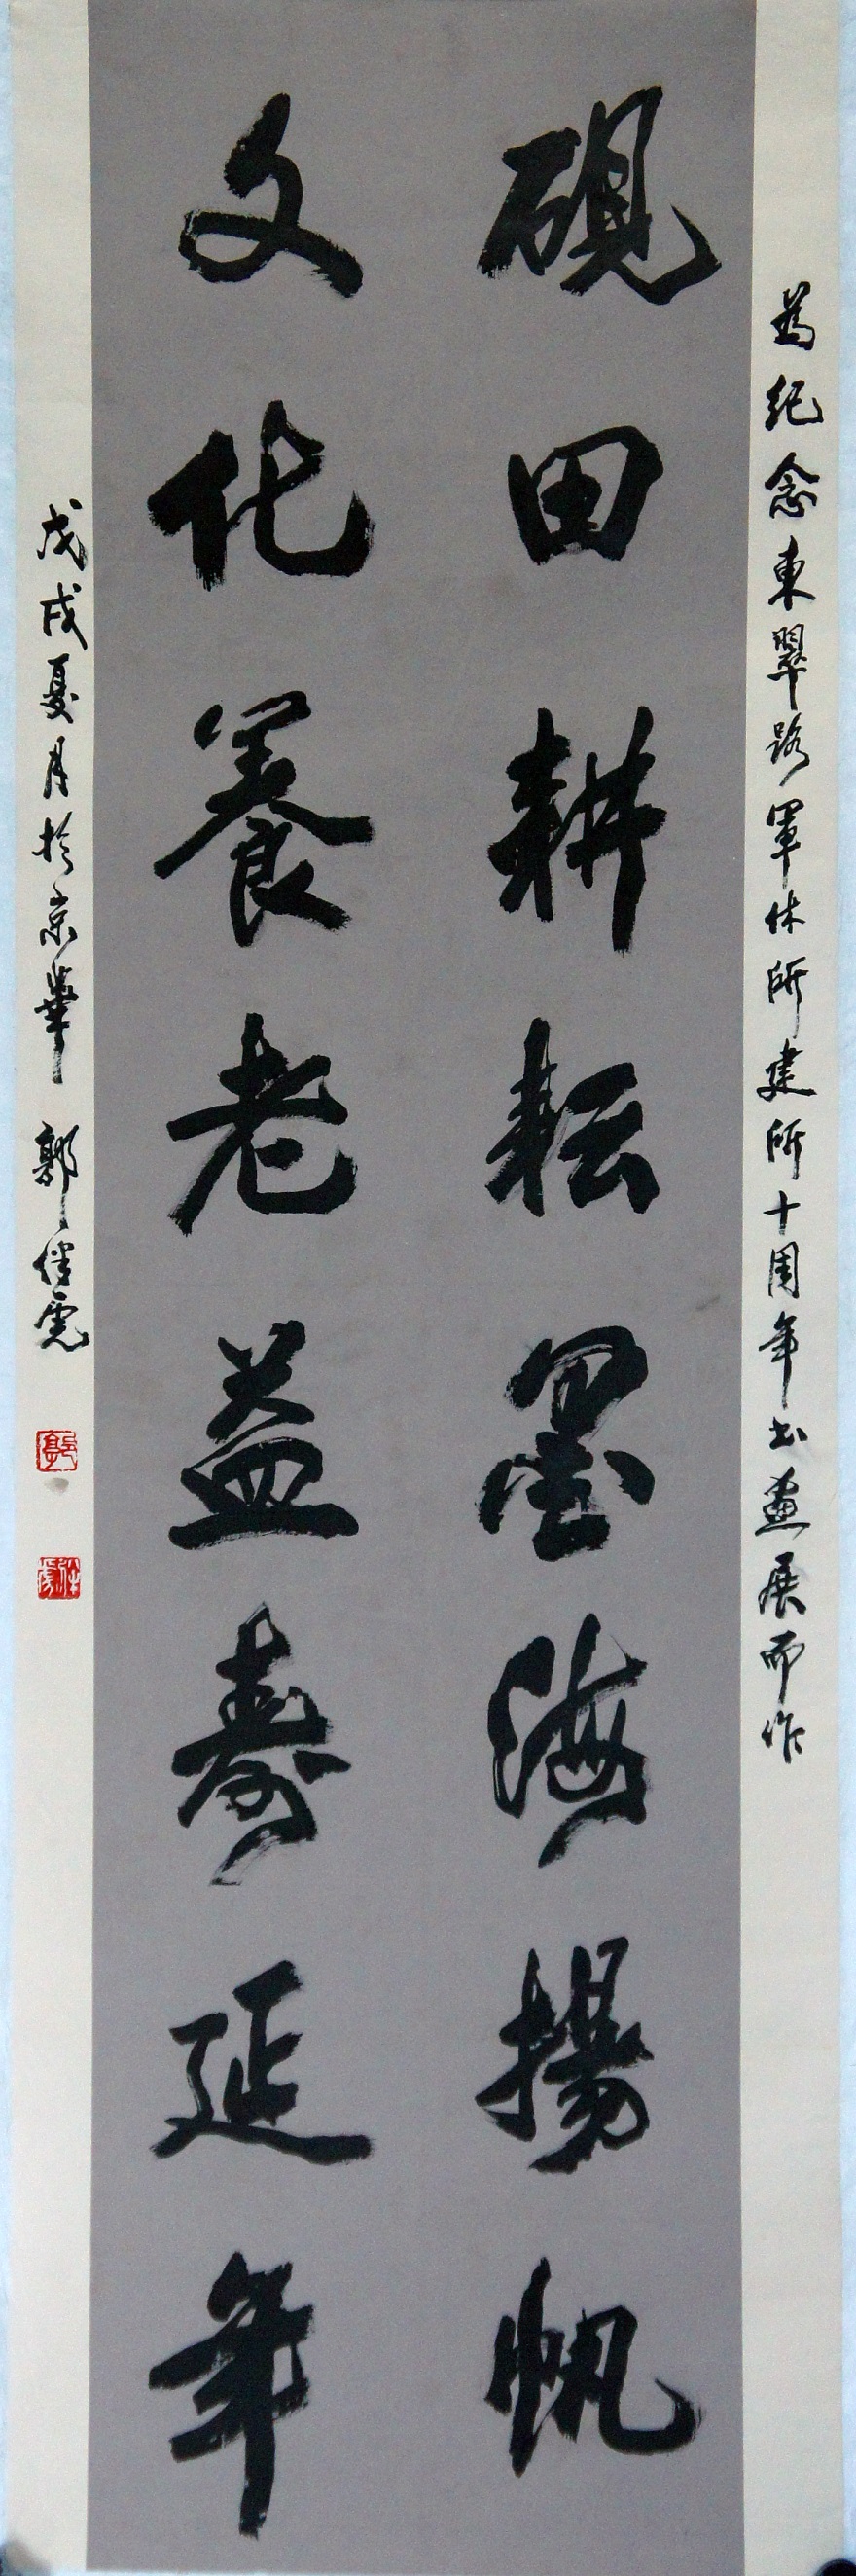 為紀念東翠路軍休所建所十周年书畫展而作
硯田耕耘墨海揚帆
文化養老益壽延年
戊戌夏月於京華 郭
郭